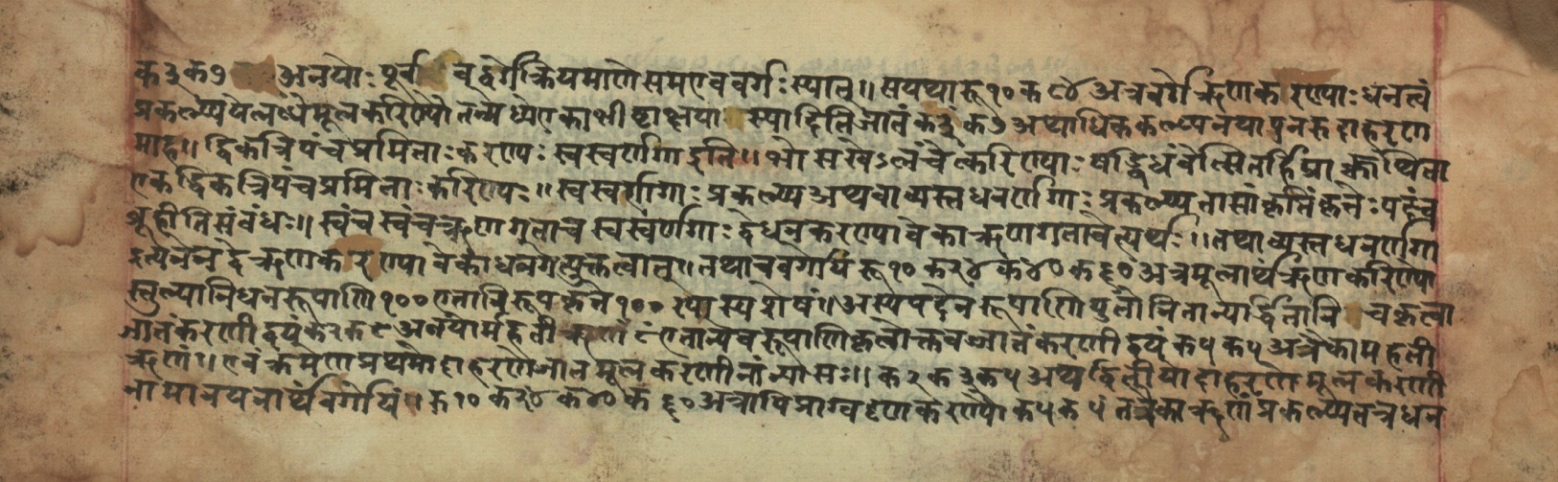 क ३ क ७ अनयोः पूर्व वद्वर्गे क्रियमाणे समएव वर्गः स्यात्॥ स यथा रू १० क ८४ अत्र वर्गे ऋणकरण्योः धनत्वं
प्रकल्प्य मूलकरिण्यौ तन्मध्यएकाभीष्टा स्यादिति जातं क ३ क ७ अथाधिककल्पनया पुनरुदाहरण
माह॥ द्विकत्रिपंचप्रमिताः करण्यः स्वस्वर्णगा इति॥ भो सखेऽलं चेत्करिण्योः षड्विधं वेत्सि तर्हि
एकद्विकत्रिपंचप्रमिताः करिण्यः॥ स्वस्वर्णगाः प्रकल्प्य अथवा व्यस्तधनर्णगाः प्रकल्प्य तासां कृतिं कृतेः पदं च
ब्रूहीति संबंधः॥ स्वं च स्वं च ऋणगताच स्वस्वर्णगाः द्वे धनकरण्यावेका ऋणगतावेत्यर्थः॥ तथा व्यस्तधनर्णगा
इत्यनेन द्वे ऋणकरण्यावेका धनगेत्युक्तत्वात्॥ तथाच वर्गोयं रू १० क २४ क ४० क ६० अत्र मूलार्थं ऋणकरिण्यो
स्तुल्यानि धनरूपाणि १०० एतानि रूपकृते १०० रपास्य शेषं॥ अस्य पदेन रूपाणि युतोनितान्यर्द्धितानि च कृत्वा
जातं करणीद्वयं क ५ क ५ अत्रैका महती
ऋणं॥ एवं क्रमेण प्रथमोदाहरणे जात मूलकरणीनां न्यासः॥ क २ क ३ क ५ अथ द्वितीयोदाहरणे मूलकरणी
नामानयनार्थं वर्गोयं॥ रू १० क २४ क ४० क ६० अत्रापि प्राग्वदृणकरण्यौ क ५ क ५ तत्रैका ऋणं प्रकल्प्य तत्र धन